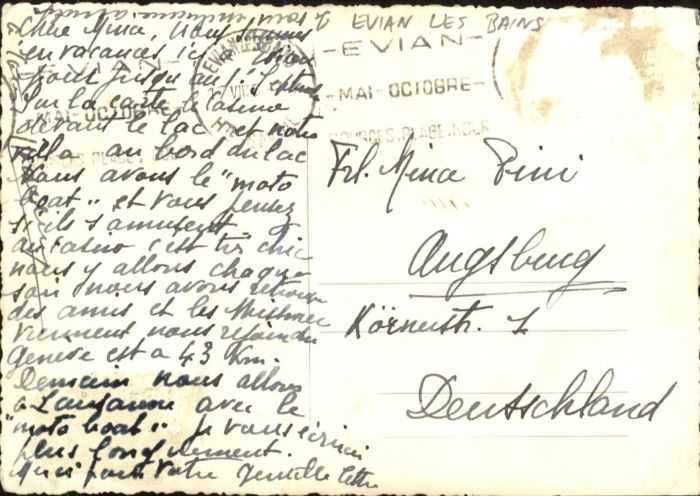 EVIAN LES BAINS
EVIAN LES BAINS
EVIAN
MAI-OCTOBRE
Chère Mina, nous sommes
en vacances ici
jour jusqu'au
sur la carte le Casino
devant le lac et notre
villa au bord du lac
nous avons le "moto
boat" et vous pensez
s'ils s'amusent.
au Casino c'est très chic
nous y allons chaque
soir nous avons retrouvé
des amis et les
viennent nous rejoindre
Genève est à 43 Km.
Demain nous allons
à Lausanne avec le
"moto boat" je vous écrirai
plus longuement.
Merci pour votre gentille lettre
Frl. Mina Pini
Augsburg
Körnerstr. 1
Deutschland